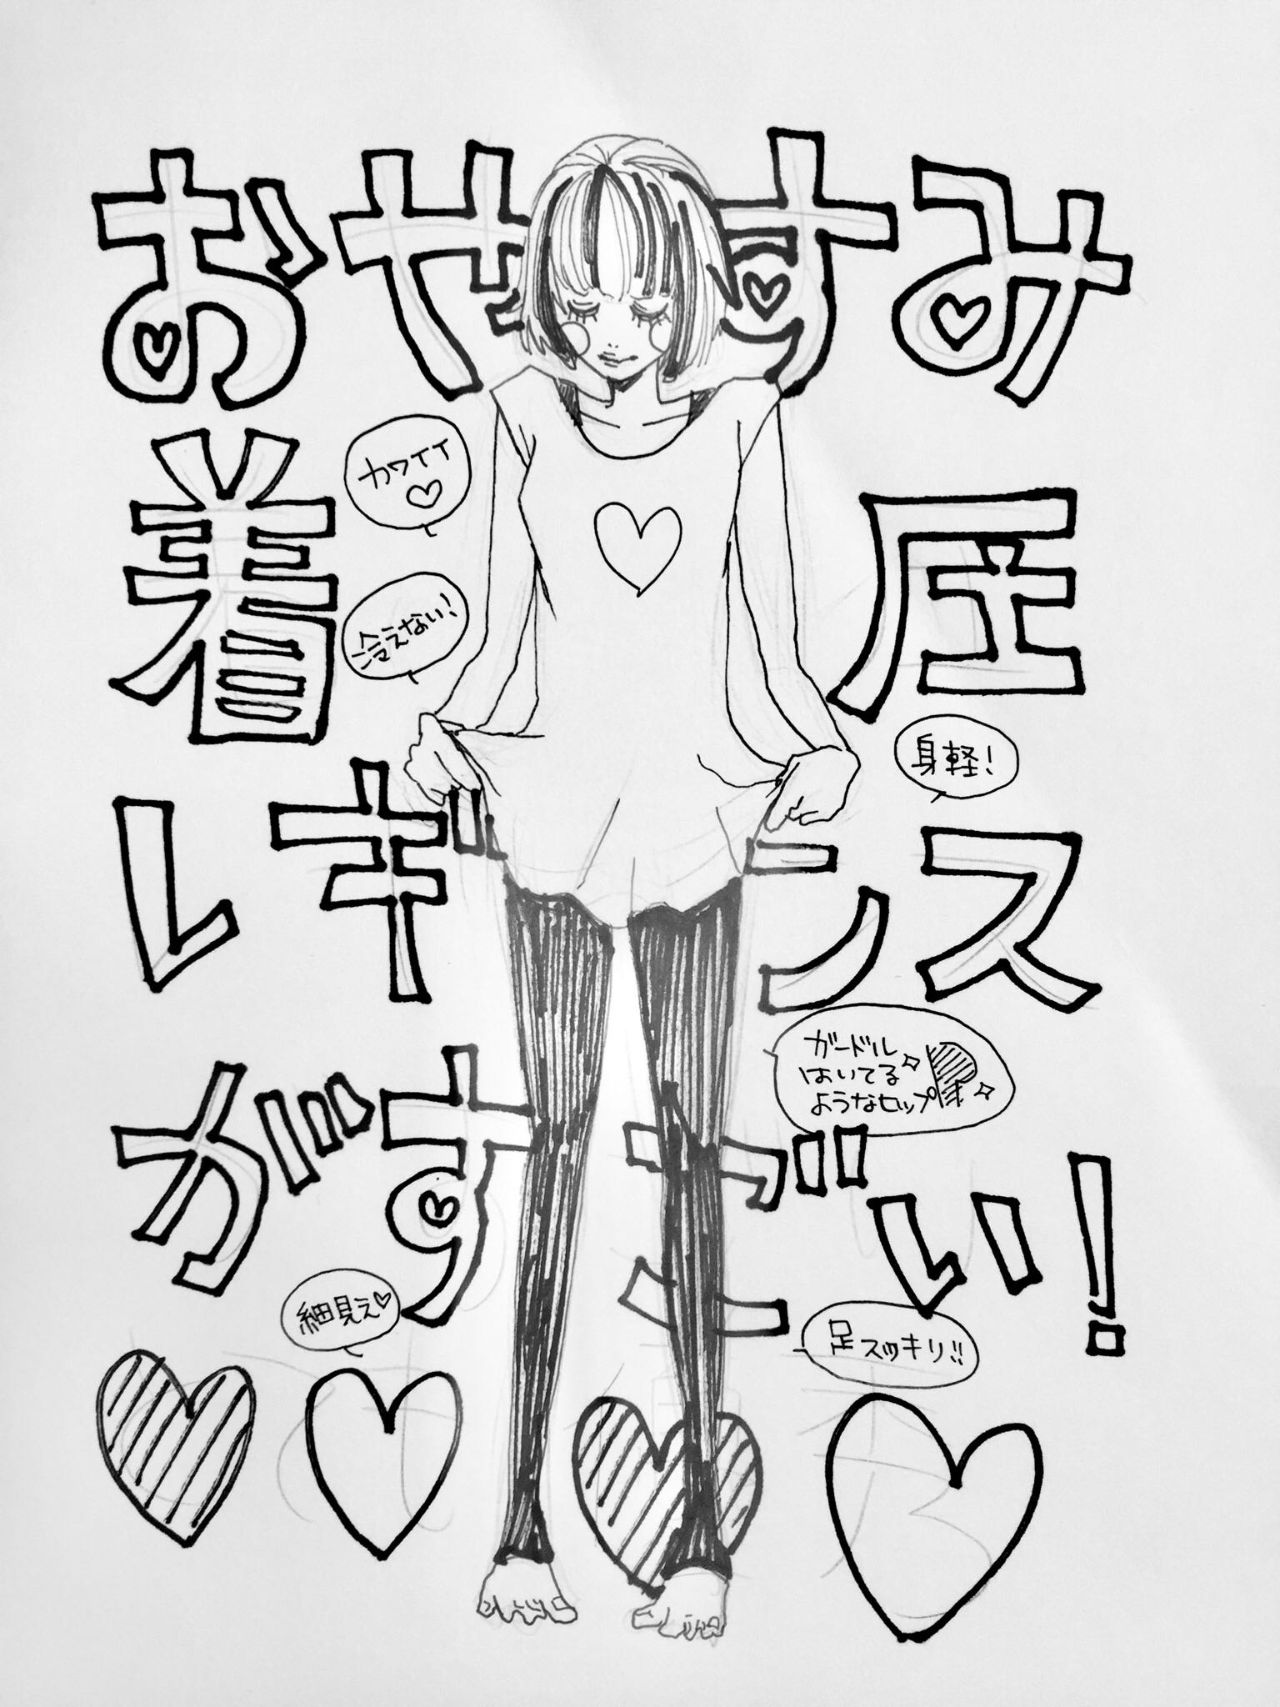 おやすみ
着圧
レギンス
がすごい!
カワイイ♡
冷えない!
身軽!
ガードル
はいてる
ようなヒップ
細見え♡
足スッキリ!!